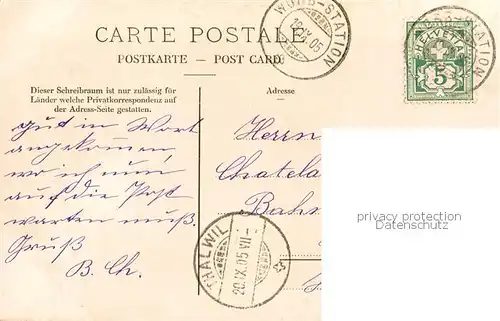 CARTE POSTALE
POSTKARTE — POST CARD
WORB-STATION
19.IX.05
HELVETIA
5
Dieser Schreibraum ist nur zulässig für
Länder welche Privatkorrespondenz auf
der Adress-Seite gestatten.
Adresse
gut in Worb
angekommen,
wo ich nun
auf die Post
warten muß.
Gruß
B. Ch.
Herrn
Chatela
Bahn
THALWIL
20.IX.05 VII-
privacy protection
Datenschutz